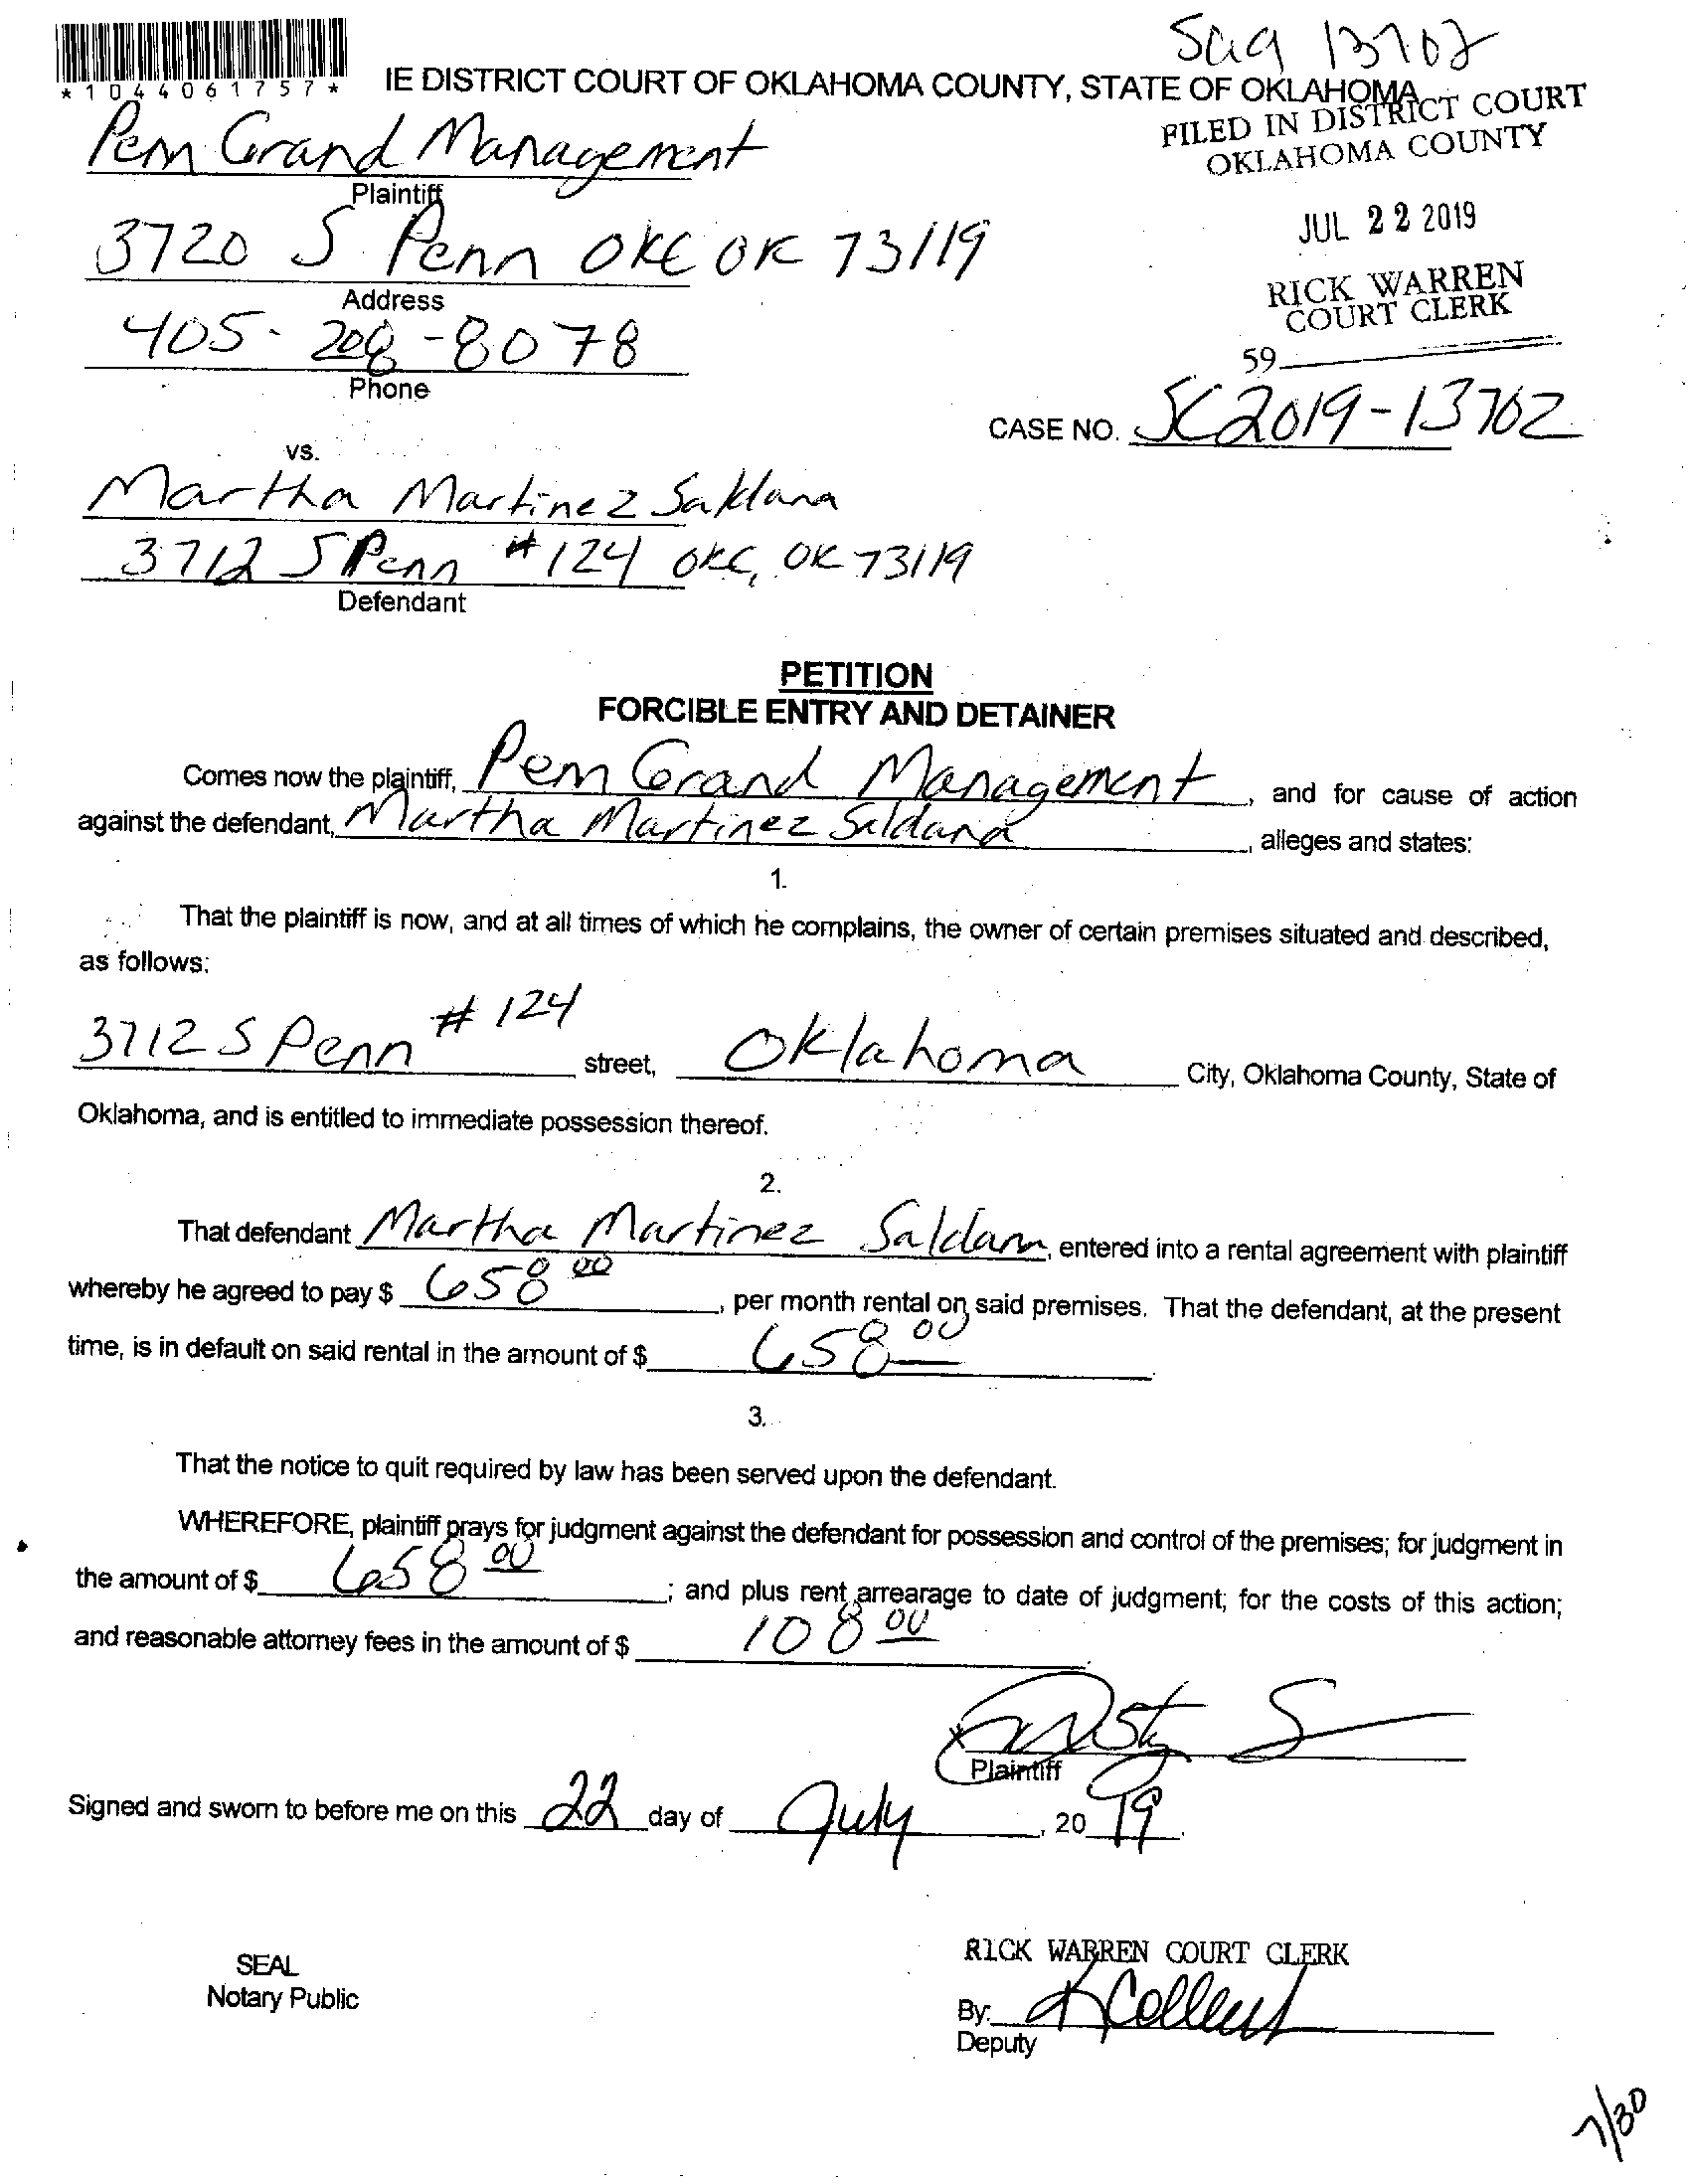 Sag 13702
*1044061757*
IE DISTRICT COURT OF OKLAHOMA COUNTY, STATE OF OKLAHOMA
FILED IN DISTRICT COURT
OKLAHOMA COUNTY
Penn Grand Management
Plaintiff
JUL 22 2019
3720 S Penn OKC OK 73119
Address
RICK WARREN
COURT CLERK
405-208-8078
Phone
59
CASE NO. SC2019-13702
vs.
Martha Martinez Saldana
3712 S Penn #124 OKC, OK 73119
Defendant
PETITION
FORCIBLE ENTRY AND DETAINER
Comes now the plaintiff, Penn Grand Management, and for cause of action
against the defendant, Martha Martinez Saldana, alleges and states:
1.
That the plaintiff is now, and at all times of which he complains, the owner of certain premises situated and described,
as follows:
3712 S Penn #124 street, Oklahoma City, Oklahoma County, State of
Oklahoma, and is entitled to immediate possession thereof.
2.
That defendant Martha Martinez Saldana, entered into a rental agreement with plaintiff
whereby he agreed to pay $ 658 00, per month rental on said premises. That the defendant, at the present
time, is in default on said rental in the amount of $ 658 00
3.
That the notice to quit required by law has been served upon the defendant.
WHEREFORE, plaintiff prays for judgment against the defendant for possession and control of the premises; for judgment in
the amount of $ 658 00; and plus rent arrearage to date of judgment; for the costs of this action;
and reasonable attorney fees in the amount of $ 108 00.
x
Plaintiff
Signed and sworn to before me on this 22 day of July, 2019.
SEAL
Notary Public
RICK WARREN COURT CLERK
By:
Deputy
7/30